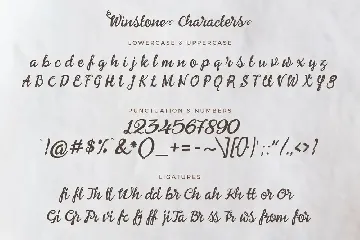 Winstone Characters
LOWERCASE & UPPERCASE
a b c d e f g h i j k l m n o p q r s t u v w x y z
A B C D E F G H I J K L M N O P Q R S T U V W X Y Z
PUNCTUATION & NUMBERS
1234567890
!@#$%&*()_+=-~\][{}|;:"/.,<>?
LIGATURES
fi fl Th ll Wh dd br Ch ah Kh tt or Or
Gi Gr Pr vi fc fj ff ji Ta Br ss Tr ws from for